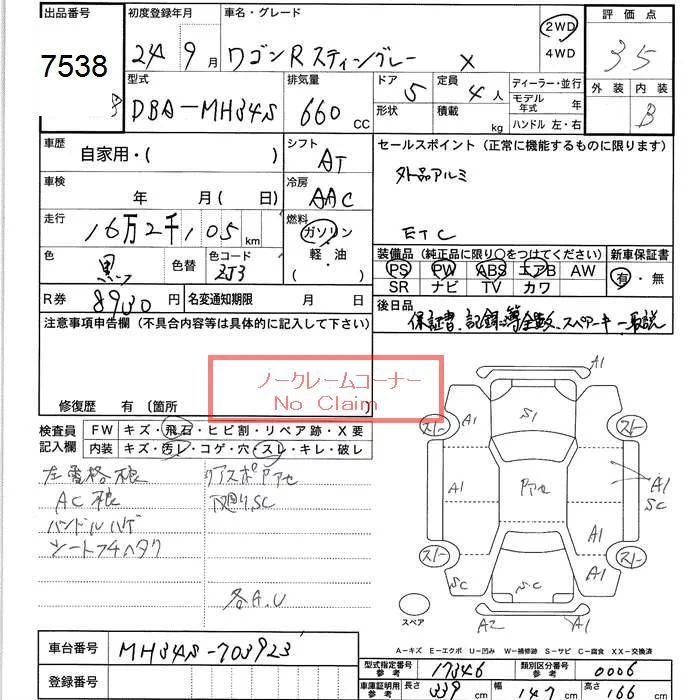 出品番号 初度登録年月 車名・グレード 評価点
7538 24年9月 ワゴンRスティングレー X 2WD 4WD 3.5
型式 排気量 ドア 定員 ディーラー・並行 外装 内装
DBA-MH34S 660 CC 5 4人 モデル年式 年 B
形状 積載 kg ハンドル 左・右
車歴 シフト セールスポイント (正常に機能するものに限ります)
自家用・( ) AT 外品アルミ
車検 冷房
年 月( 日) AAC
走行 燃料
16万2千105 km ガソリン ETC
色 色替 色コード 軽・油 装備品 (純正品に限り○をつけてください) 新車保証書
黒 ZJ3 ( ) PS PW ABS エアB AW 有・無
SR ナビ TV カワ
R券 8930円 名変通知期限 月 日 後日品
注意事項申告欄 (不具合内容等は具体的に記入して下さい) 保証書、記録簿
ノークレームコーナー
No Claim
修復歴 有 〔箇所
検査員 FW キズ・飛石・ヒビ割・リペア跡・X要
記入欄 内装 キズ・汚レ・コゲ・穴・スレ・キレ・破レ
AC
ハンドルハゲ
シートヘタリ
各A.U
A1
A1 S1 A1
A1 A1 A1
SC
A1
SC SC A1
A2 A1
スペア
A-キズ E-エクボ U-凹み W-補修跡 S-サビ C-腐食 XX-交換済
車台番号 MH34S-703923 型式指定番号 参考 17346 類別区分番号 参考 0006
登録番号 車庫証明用 参考 長さ 339 cm 幅 147 cm 高さ 166 cm